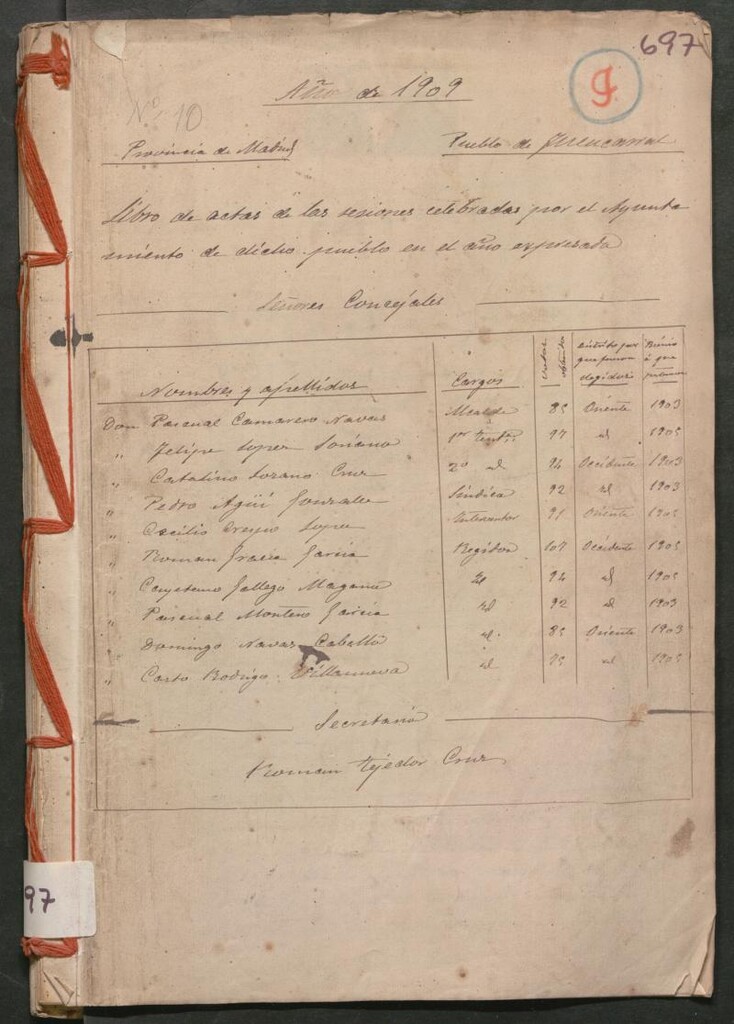 697
9
Nº 10
Año de 1909
Provincia de Madrid
Pueblo de Fuencarral
Libro de actas de las sesiones celebradas por el Ayunta
miento de dicho pueblo en el año expresado
Señores Concejales
Nombres y apellidos Cargos votos obtenidos Distrito por que fueron elegidos Bienio á que pertenecen
Don Pascual Camarero Navas Alcalde 85 Oriente 1903
" Felipe Lopez Soriano 1er Tente 97 id 1905
" Catalino Lozano Cruz 2º id 94 Occidente 1903
" Pedro Agüi Gonzalez Sindico 92 id 1903
" Cecilio Crespo Lopez Interventor 91 Oriente 1905
" Roman Gracia Garcia Regidor 107 Occidente 1905
" Cayetano Gallego Magano id 94 id 1905
" Pascual Montero Garcia id 92 id 1903
" Domingo Navas Caballo id. 85 Oriente 1903
" Casto Rodrigo Villanueva id 95 id 1905
Secretario
Roman Tejedor Cruz
97